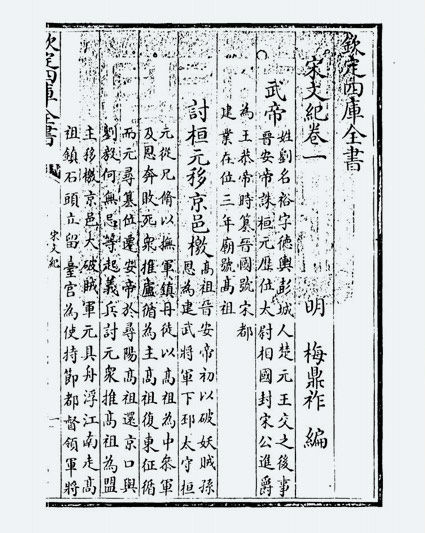 欽定四庫全書
宋文紀卷一
明 梅鼎祚 編
武帝
姓劉名裕字德輿彭城人楚元王交之後事
晉安帝誅桓元歴位太尉相國封宋公進爵
為王恭帝時篡晉國號宋都
建業在位三年廟號髙祖
討桓元移京邑檄
髙祖晉安帝初以破妖賊孫
恩為建武將軍下邳太守桓
元從兄脩以撫軍鎮丹徒以髙祖為中叅軍
及恩奔敗死衆推盧循為主髙祖復東征循
而元尋簒位遷安帝於尋陽髙祖還京口與
劉毅何無忌等起義兵討元衆推髙祖為盟
主移檄京邑大破賊軍元具舟浮江南走髙
祖鎮石頭立留臺官為使持節都督領軍將
欽定四庫全書
宋文紀
一